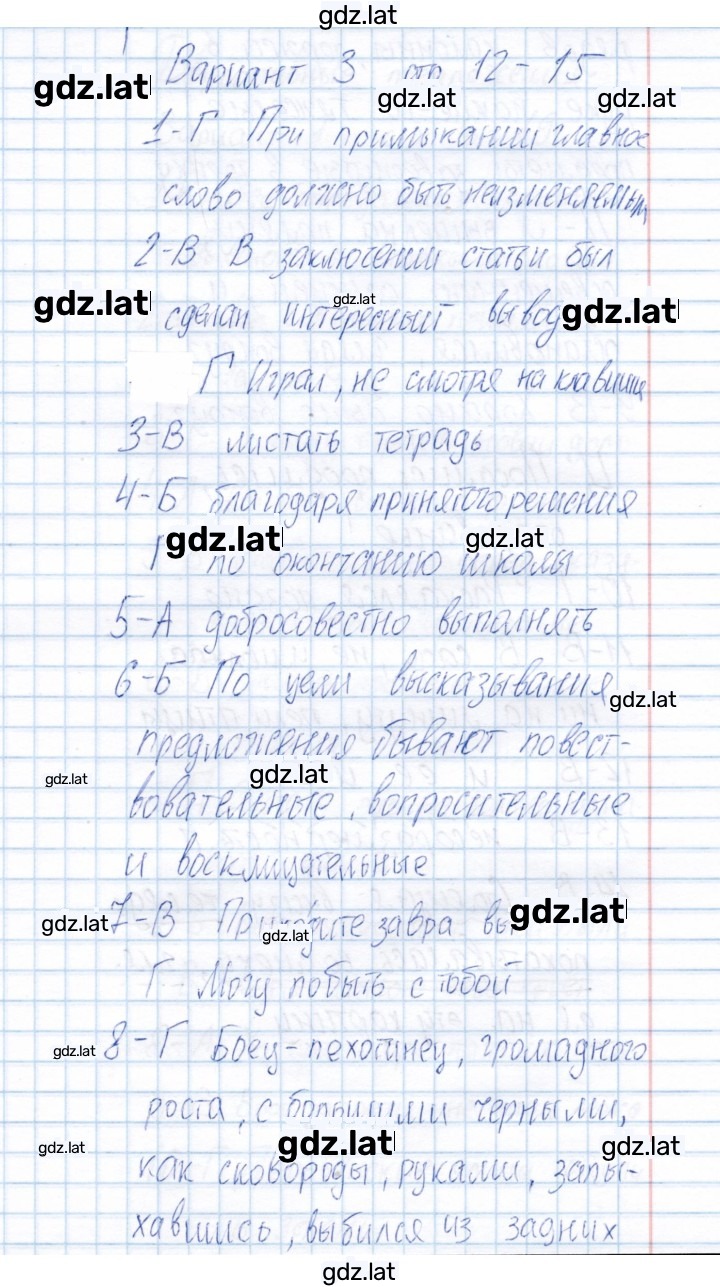 gdz.lat
Вариант 3 стр 12-15
gdz.lat
gdz.lat gdz.lat
1-Г При примыкании главное
слово должно быть неизменяемым
2-В В заключении статьи был
gdz.lat gdz.lat gdz.lat
сделан интересный вывод
Г Играл, не смотря на клавиши
3-В листать тетрадь
4-Б благодаря принятого решения
gdz.lat gdz.lat
Г по окончанию школы
5-А добросовестно выполнять
6-Б По цели высказывания
gdz.lat
предложения бывают повест-
gdz.lat gdz.lat
вовательные, вопросительные
и восклицательные
gdz.lat 7-В Приходите завра вы gdz.lat
gdz.lat
Г Могу побыть с тобой
gdz.lat 8-Г Боец-пехотинец, громадного
роста, с большими черными,
gdz.lat gdz.lat gdz.lat
как сковороды, руками, запы-
хавшись, выбился из задних
gdz.lat